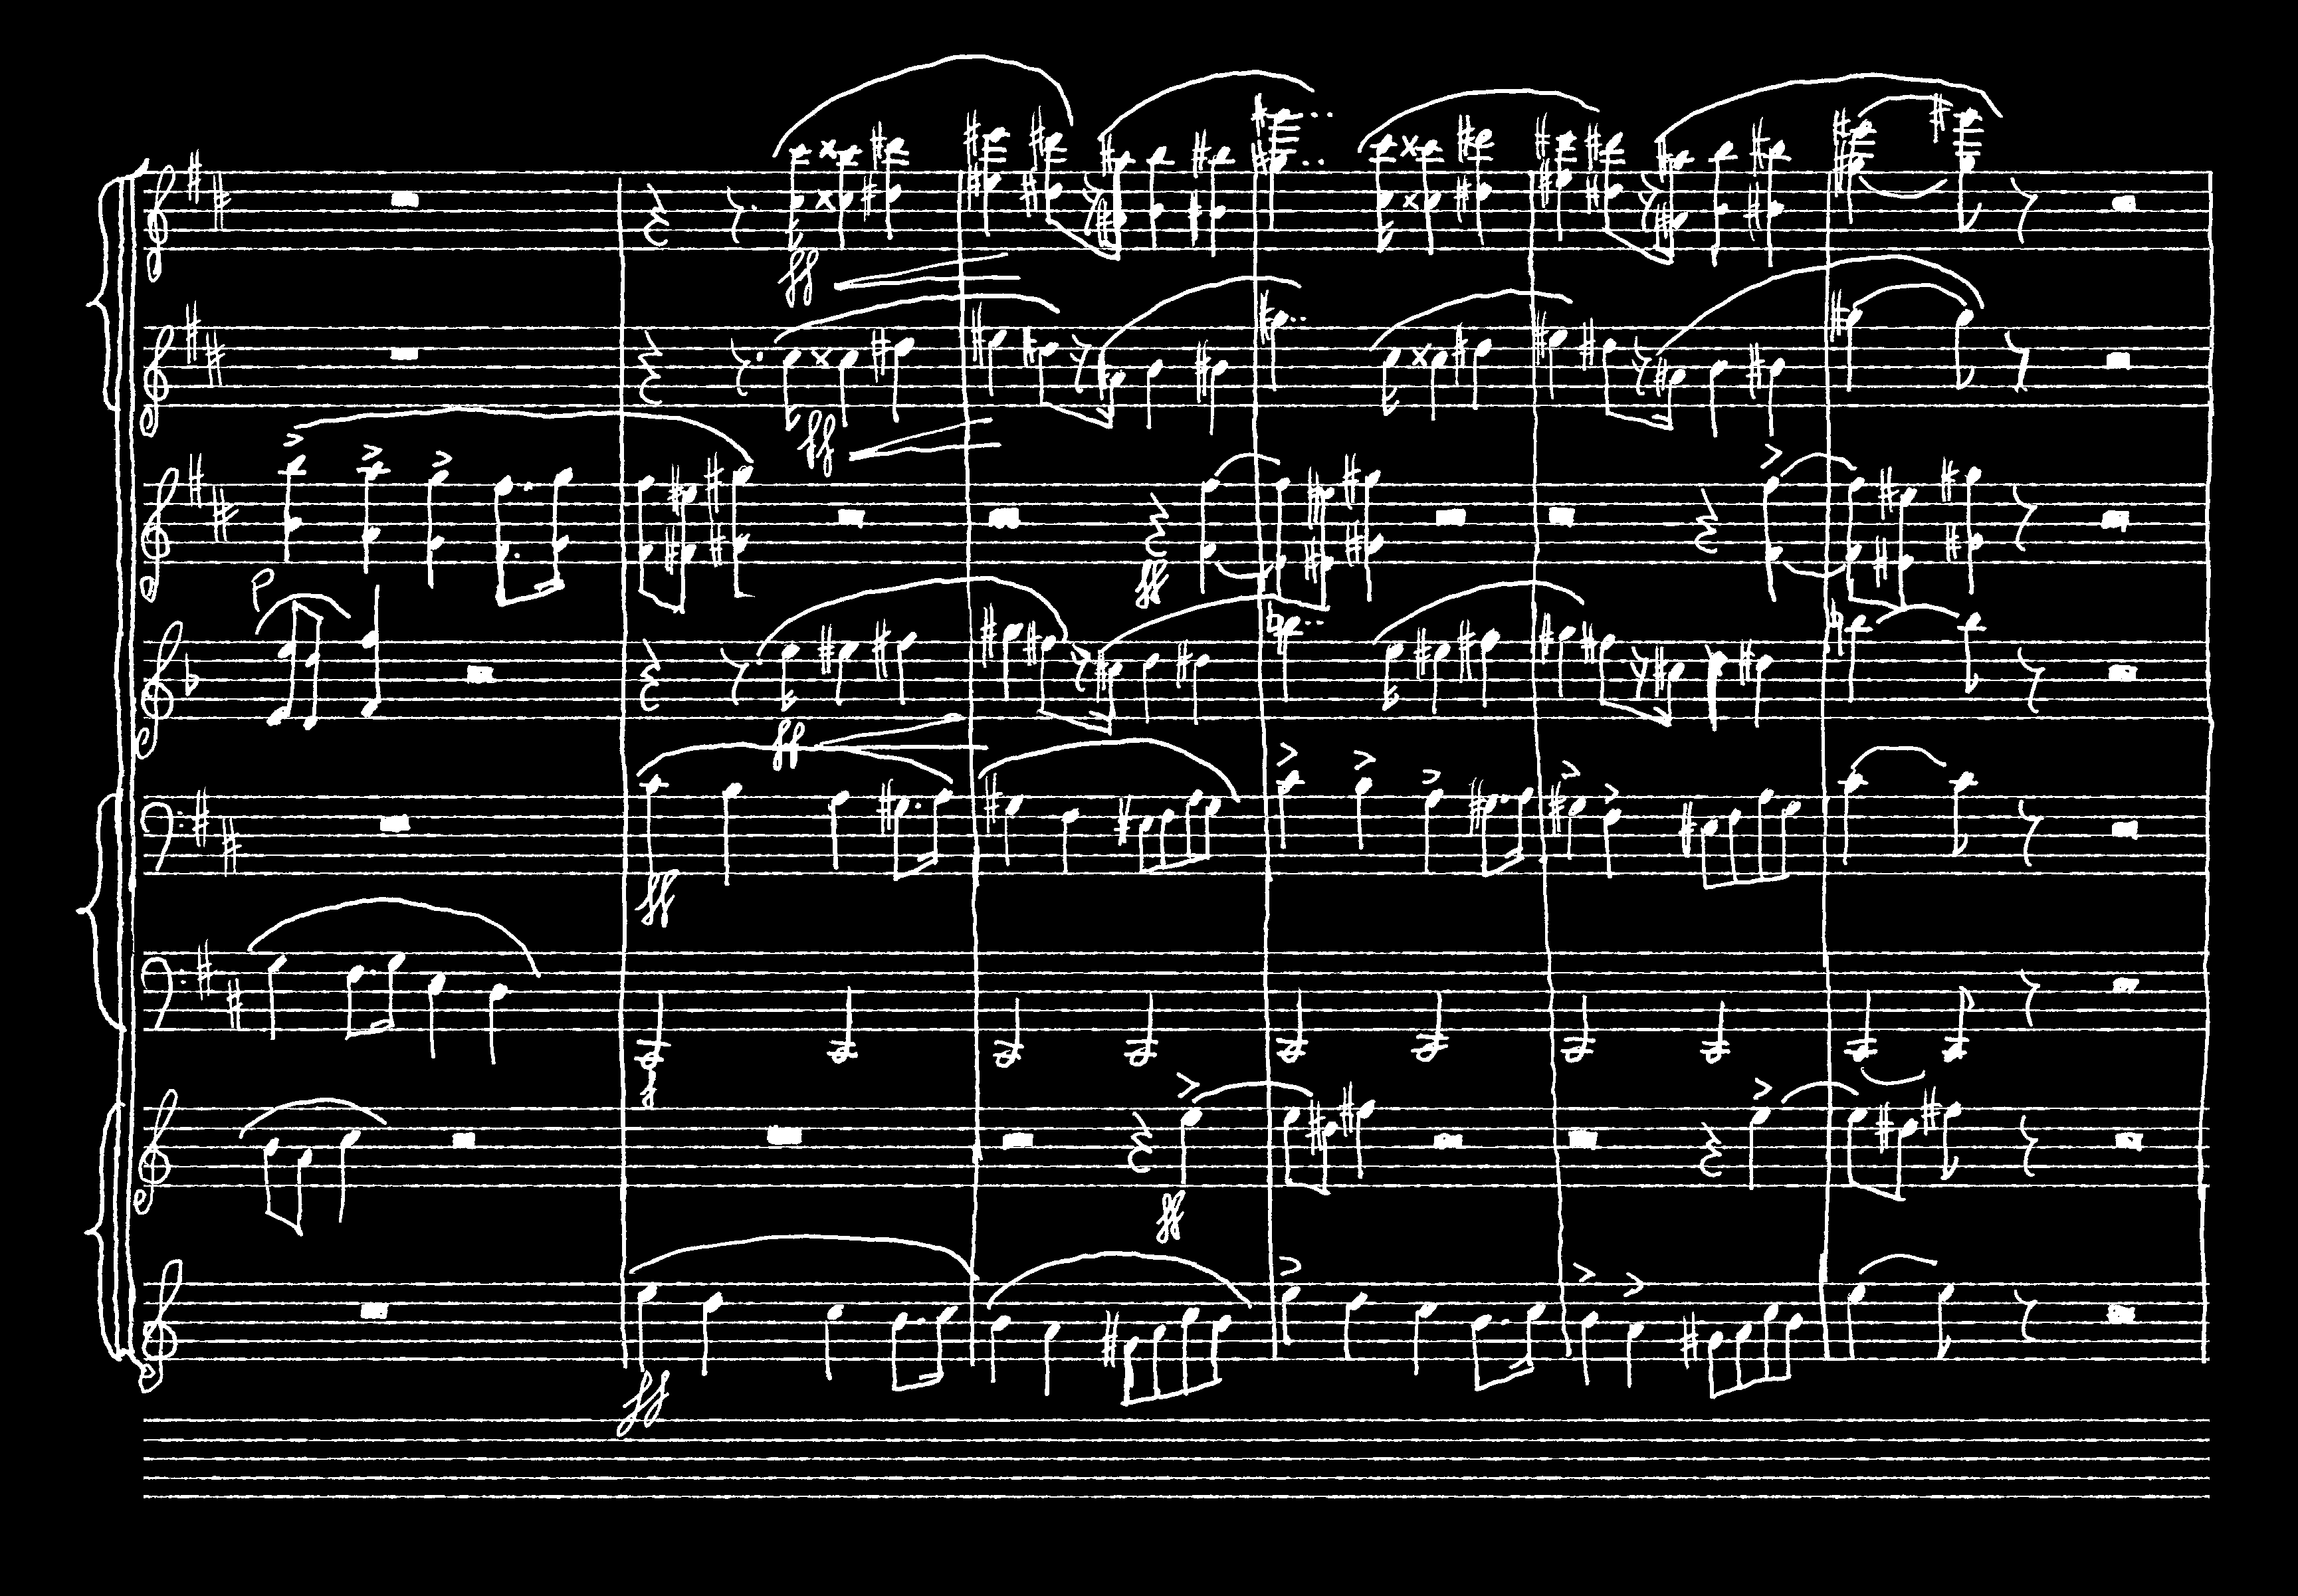 ff
ff
ff
p
ff
ff
f
ff
ff